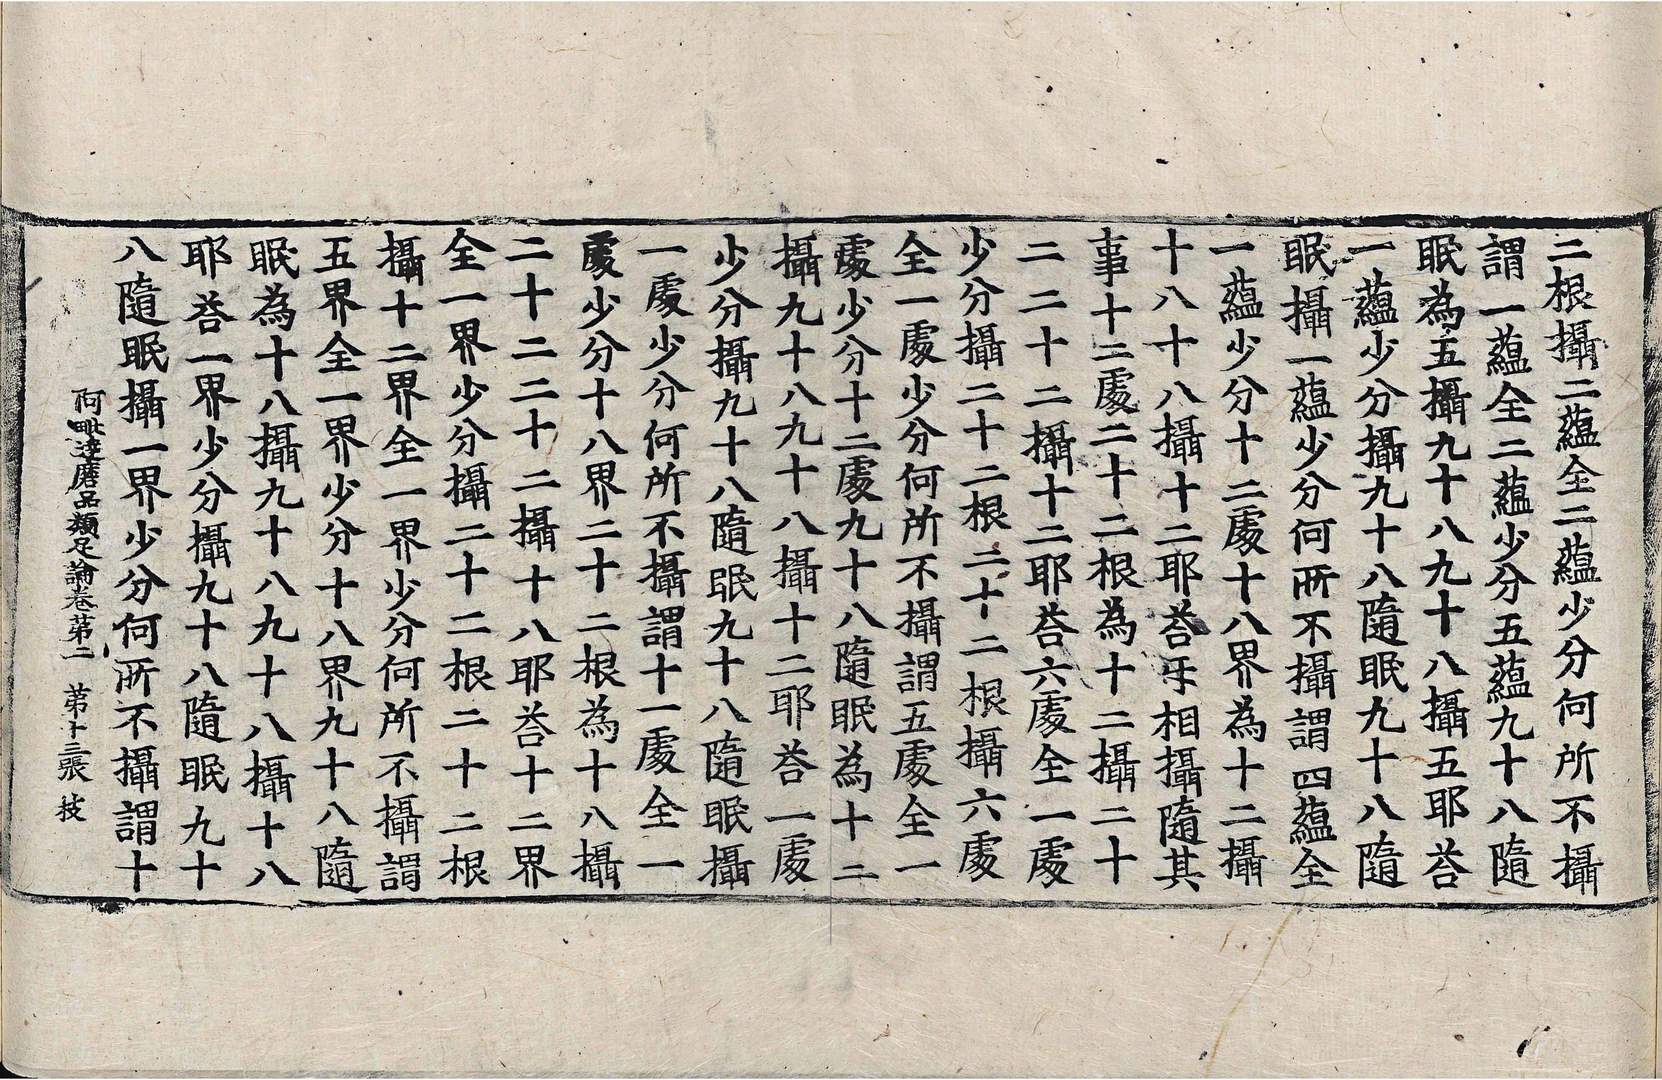 二根攝二蘊全二蘊少分何所不攝
謂一蘊全二蘊少分五蘊九十八隨
眠為五攝九十八九十八攝五耶荅
一蘊少分攝九十八隨眠九十八隨
眠攝一蘊少分何所不攝謂四蘊全
一蘊少分十二處十八界為十二攝
十八十八攝十二耶荅牙相攝隨其
事十二處二十二根為十二攝二十
二二十二攝十二耶荅六處全一處
少分攝二十二根二十二根攝六處
全一處少分何所不攝謂五處全一
處少分十二處九十八隨眠為十二
攝九十八九十八攝十二耶荅一處
少分攝九十八隨眠九十八隨眠攝
一處少分何所不攝謂十一處全一
處少分十八界二十二根為十八攝
二十二二十二攝十八耶荅十二界
全一界少分攝二十二根二十二根
攝十二界全一界少分何所不攝謂
五界全一界少分十八界九十八隨
眠為十八攝九十八九十八攝十八
耶荅一界少分攝九十八隨眠九十
八隨眠攝一界少分何所不攝謂十
阿毗達磨品類足論卷第二 第十三張 枝